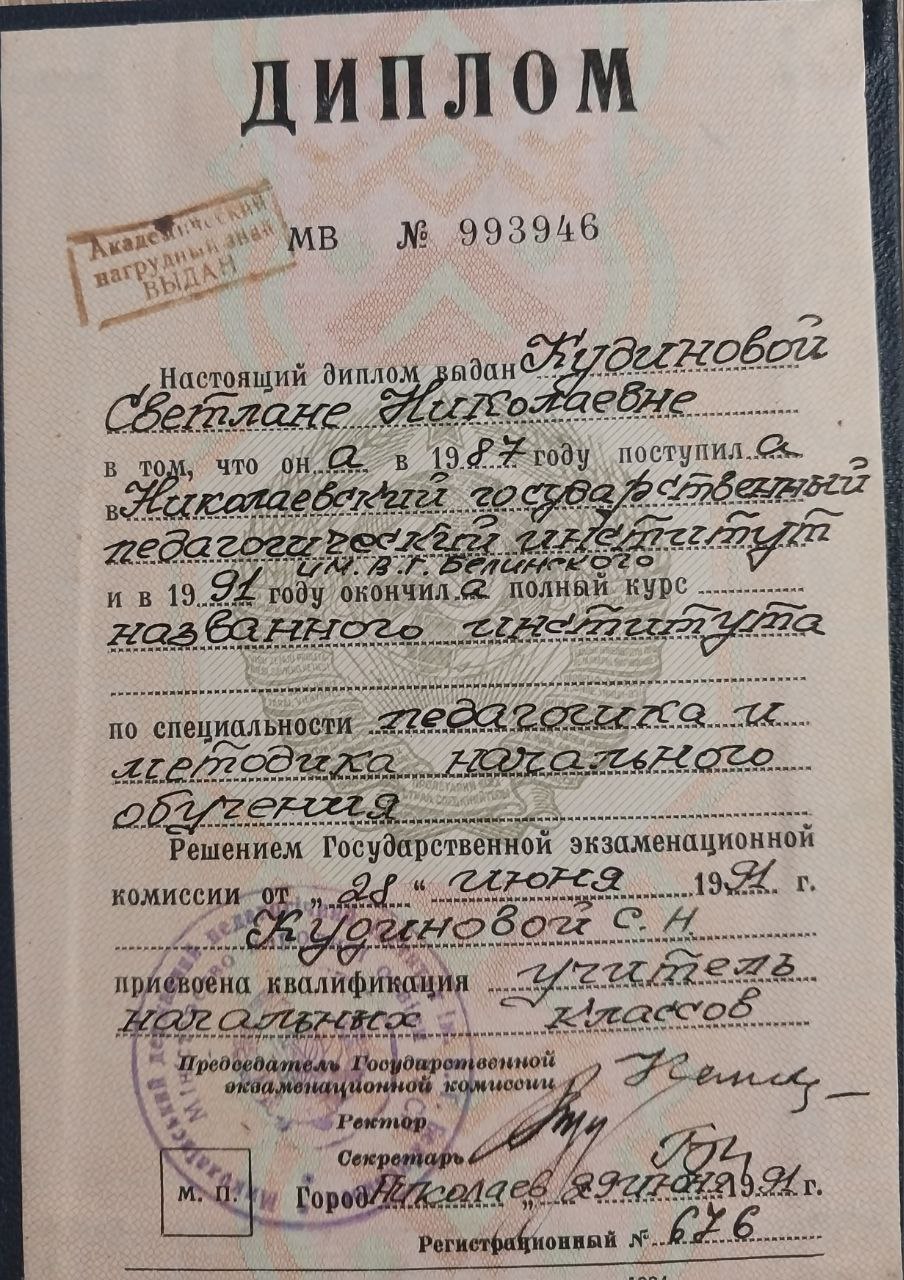 ДИПЛОМ
Академический
нагрудный знак
ВЫДАН
МВ № 993946
Настоящий диплом выдан Кудиновой
Светлане Николаевне
в том, что он а в 1987 году поступил а
в Николаевский государственный
педагогический институт
им. В.Г. Белинского
и в 1991 году окончил а полный курс
названного института
по специальности педагогика и
методика начального
обучения
Решением Государственной экзаменационной
комиссии от „28“ июня 1991 г.
Кудиновой С. Н.
присвоена квалификация учитель
начальных классов
Председатель Государственной
экзаменационной комиссии
Ректор
Секретарь
М. П.
Город Николаев „29 июня 1991 г.
Регистрационный № 676